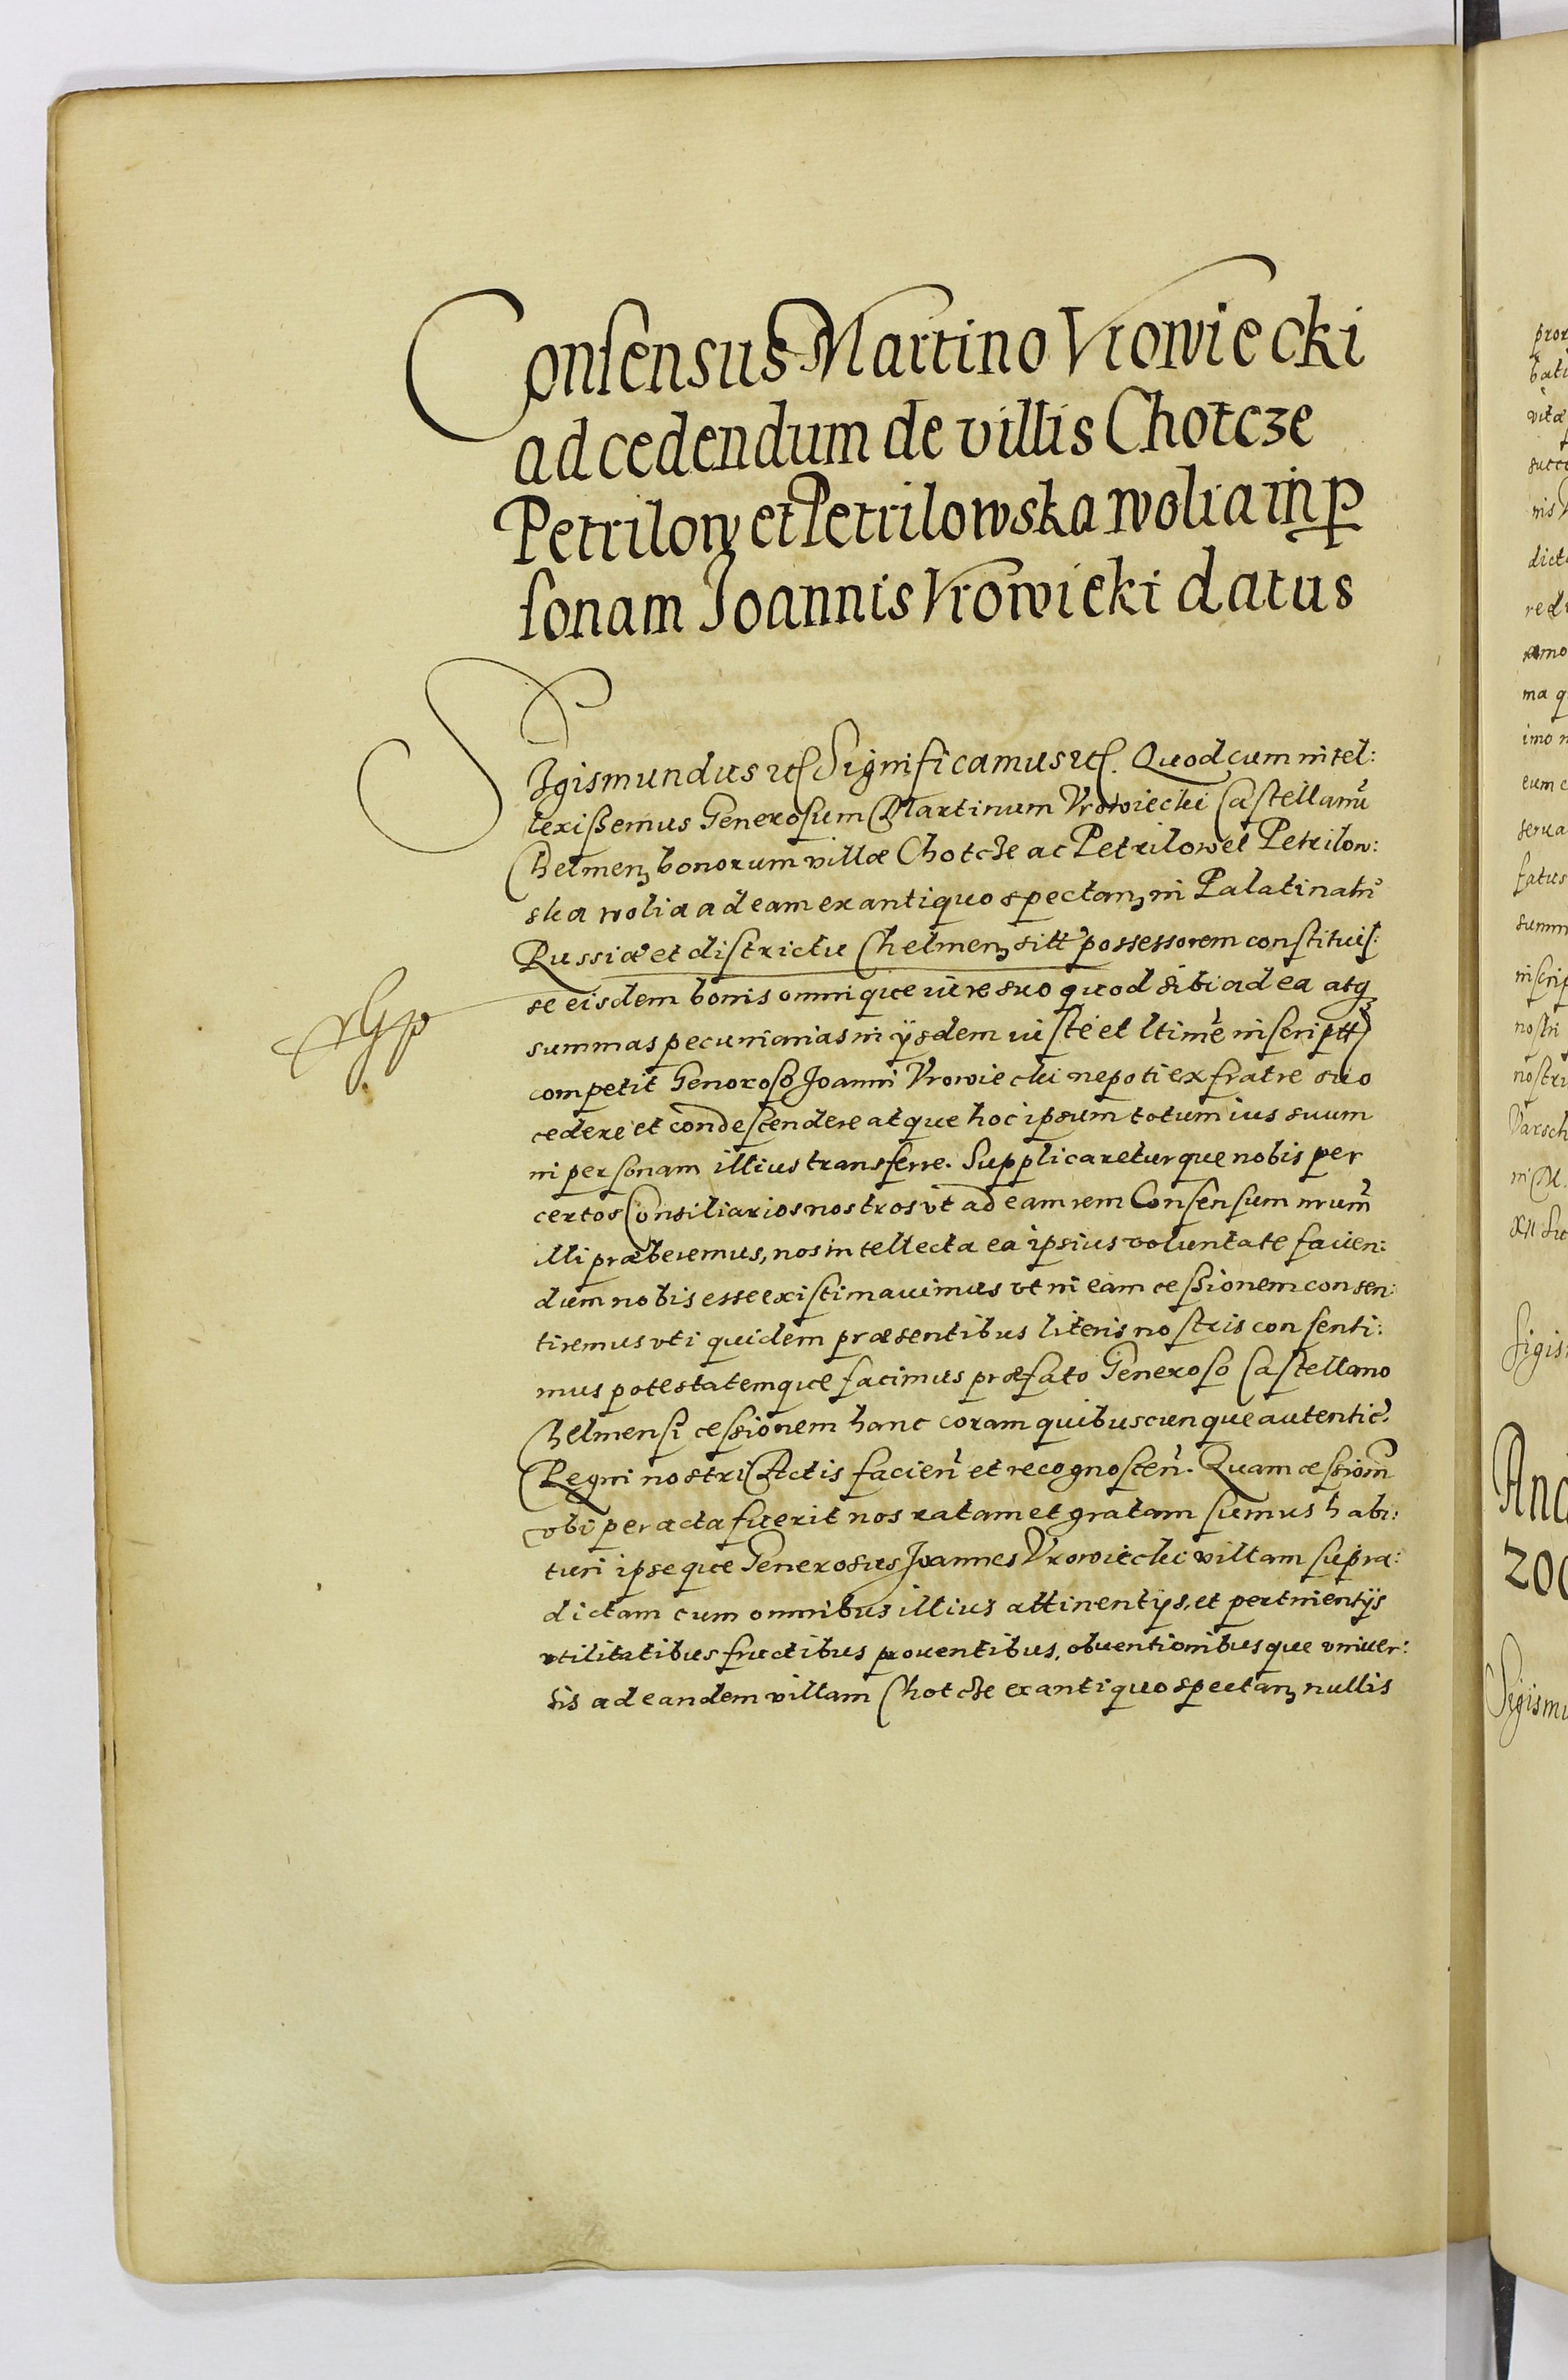 Consensus Martino Vrowiecki
ad cedendum de villis Chotcze
Petrilow et Petrilowska wolia in p
sonam Joannis Vrowicki datus
Sigismundus etc Significamus etc. Quod cum intel:
lexissemus Generosum Martinum Vrowiecki Castellanũ
Chelmen bonorum villæ Chotcze ac Petrilow et Petrilow:
ska wolia ad eam ex antiquo spectan in Palatinatũ
Russiæ et districtu Chelmen sitt possessorem constituis:
se eisdem bonis omnique iure suo quod sibi ad ea atq
summas pecuniarias in ijsdem iuste et ltime inscriptt
competit Generoso Joanni Vrowiecki nepoti ex fratre suo
cedere et condescendere atque hoc ipsum totum ius suum
in personam illius transferre. Supplicareturque nobis per
certos Consiliarios nostros vt ad eam rem Consensum nrum
illi præberemus, nos intellecta ea ipsius voluntate facien:
dum nobis esse existimauimus vt in eam cessionem consen:
tiremus vti quidem præsentibus literis nostris consenti:
mus potestatemque facimus præfato Generoso Castellano
Chelmensi cessionem hanc coram quibuscunque autentic
Regni nostri Actis facien et recognoscen. Quam cessionẽ
vbi peracta fuerit nos ratam et gratam sumus habi:
turi ipseque Generosus Joannes Vrowiecki villam supra:
dictam cum omnibus illius attinentijs, et pertinentijs
vtilitatibus fructibus prouentibus, obuentionibusque vniuer:
sis ad eandem villam Chotcze ex antiquo spectan nullis